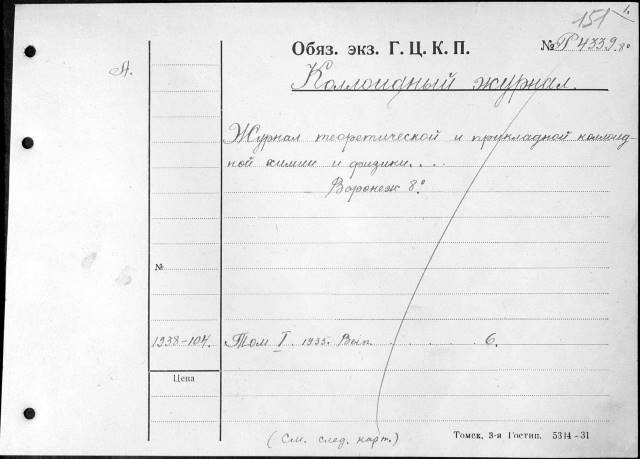 151
1.
Обяз. экз. Г. Ц. К. П.
№ Р 4339. 8°
А.
Коллоидный журнал.
Журнал теоретической и прикладной коллоид-
ной химии и физики. . . .
Воронеж 8°
№
1938-104. Том I. 1935. Вып. . . . . . 6.
Цена
(См. след. карт.)
Томск, 3-я Гостип. 5314-31